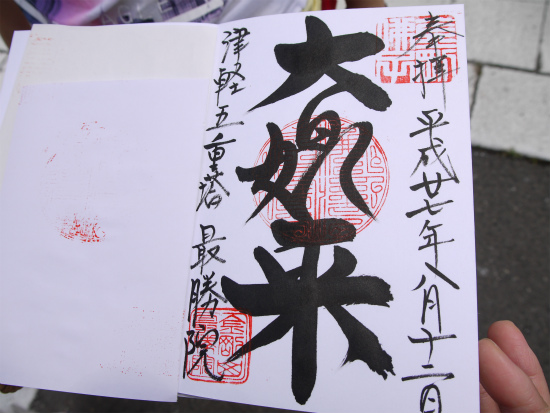 奉拝 平成廿七年八月十二日
大日如来
津軽五重塔 最勝院